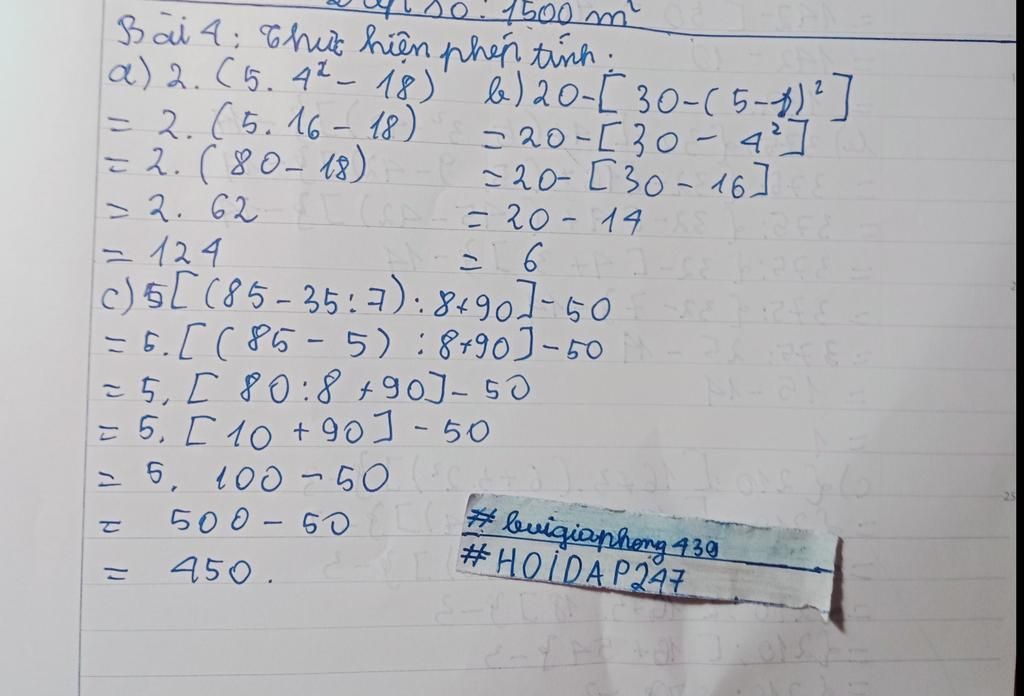 Đáp số: 1500 m²
Bài 4: Thực hiện phép tính.
a) 2. (5. 4² - 18)
= 2. (5. 16 - 18)
= 2. (80 - 18)
= 2. 62
= 124
b) 20 - [30 - (5 - 1)²]
= 20 - [30 - 4²]
= 20 - [30 - 16]
= 20 - 14
= 6
c) 5[(85 - 35:7) : 8+90] - 50
= 5. [(85 - 5) : 8+90] - 50
= 5. [80:8 +90] - 50
= 5. [10 + 90] - 50
= 5. 100 - 50
= 500 - 50
= 450.
#buigiaphong439
#HOIDAP247